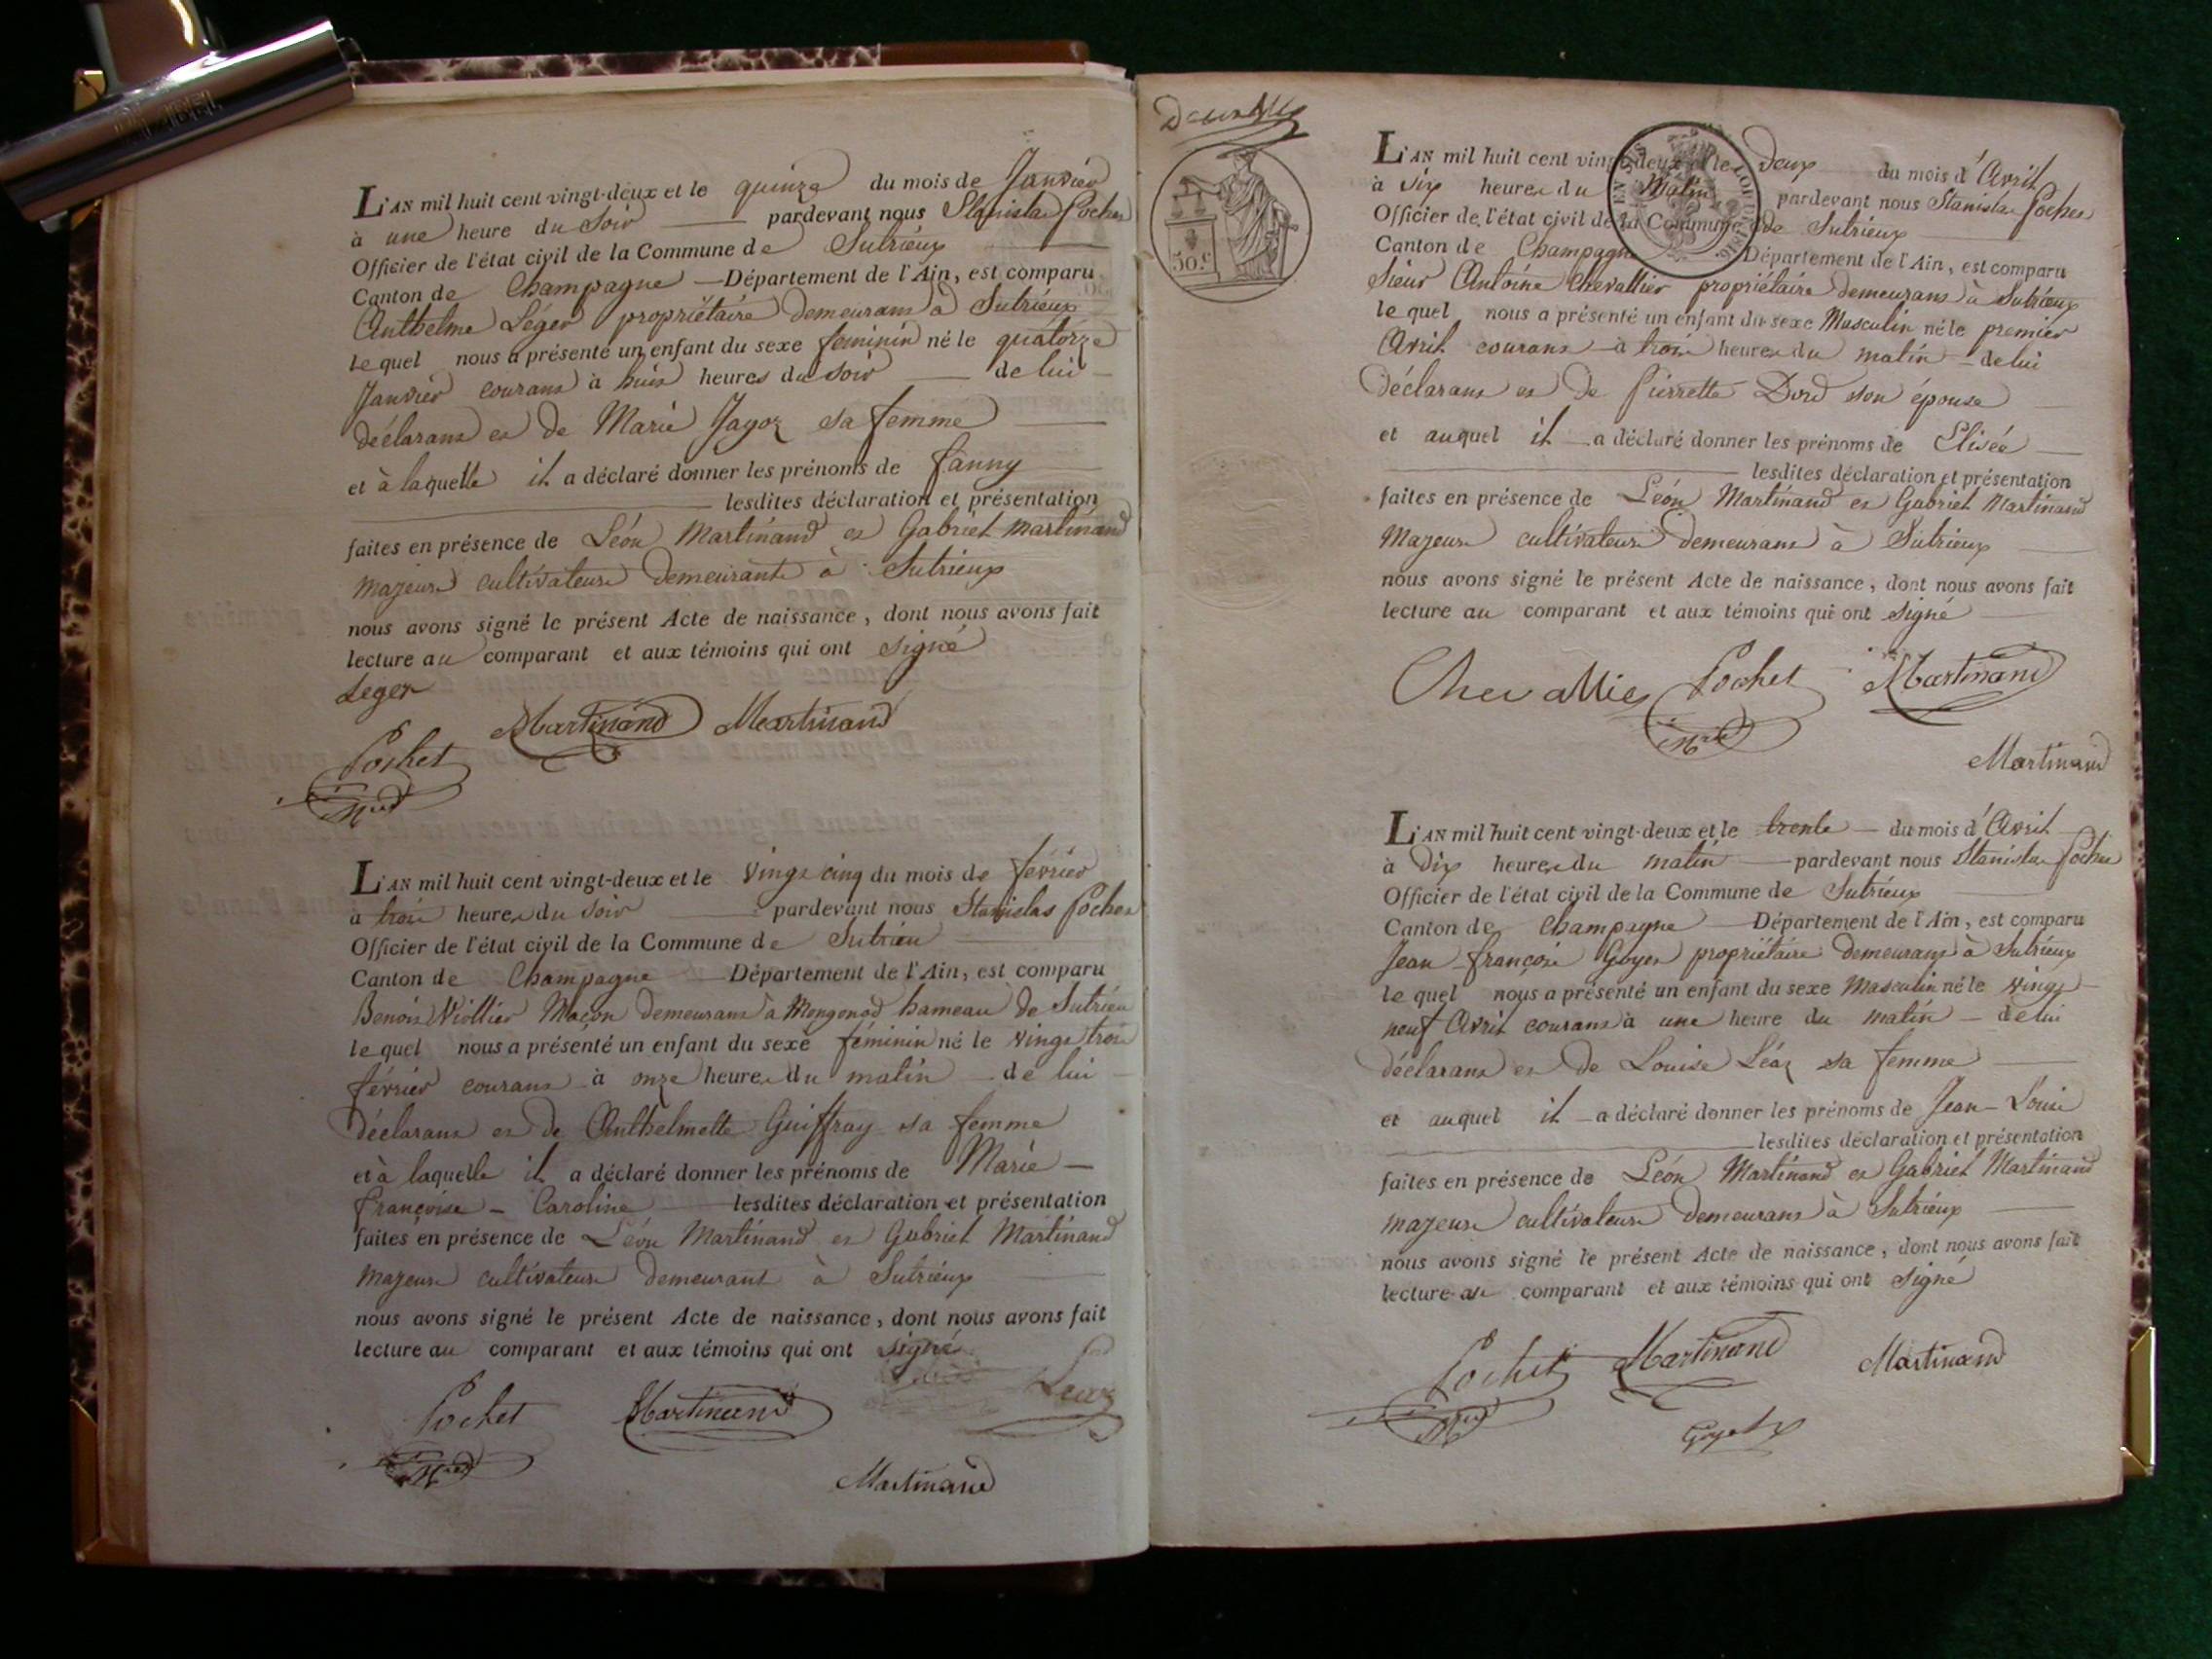 L'AN mil huit cent vingt-deux et le quinze du mois de Janvier
à une heure du soir pardevant nous Stanislas Pochet
Officier de l'état civil de la Commune de Sutrieux
Canton de Champagne Département de l'Ain, est comparu
Anthelme Léger propriétaire demeurant à Sutrieux
lequel nous a présenté un enfant du sexe feminin né le quatorze
Janvier courant à huit heures du soir de lui
déclarant et de Marie Jagoz sa femme
et à laquelle il a déclaré donner les prénoms de fanny
lesdites déclaration et présentation
faites en présence de Léon Martinand et Gabriel Martinand
majeurs cultivateurs demeurants à Sutrieux
nous avons signé le présent Acte de naissance, dont nous avons fait
lecture au comparant et aux témoins qui ont signé
Leger
Martinand Martinand
Pochet
L'AN mil huit cent vingt-deux et le vingt cinq du mois de février
à trois heures du soir pardevant nous Stanislas Pochet
Officier de l'état civil de la Commune de Sutrieu
Canton de Champagne Département de l'Ain, est comparu
Benoit Viollier Maçon demeurant à Mongonod hameau de Sutrieu
lequel nous a présenté un enfant du sexe féminin né le vingt trois
février courant à onze heures du matin de lui
déclarant et de Anthelmette Guiffray sa femme
et à laquelle il a déclaré donner les prénoms de Marie –
françoise – Caroline lesdites déclaration et présentation
faites en présence de Léon Martinand et Gabriel Martinand
majeurs cultivateurs demeurant à Sutrieux
nous avons signé le présent Acte de naissance, dont nous avons fait
lecture au comparant et aux témoins qui ont signé
Pochet Martinand
Martinand
30.c
L'AN mil huit cent vingt-deux et le deux du mois d'Avril
à six heures du matin pardevant nous Stanislas Pochet
Officier de l'état civil de la Commune de Sutrieux
Canton de Champagne Département de l'Ain, est comparu
Sieur Antoine Chevallier propriétaire demeurant à Sutrieux
lequel nous a présenté un enfant du sexe Masculin né le premier
Avril courant à trois heures du matin de lui
déclarant et de Pierrette Dord son épouse
et auquel il a déclaré donner les prénoms de Elisée
lesdites déclaration et présentation
faites en présence de Léon Martinand et Gabriel Martinand
Majeurs cultivateurs demeurans à Sutrieux
nous avons signé le présent Acte de naissance, dont nous avons fait
lecture au comparant et aux témoins qui ont signé
Chevallier Pochet Martinand
Martinand
L'AN mil huit cent vingt-deux et le trente du mois d'Avril
à dix heures du matin pardevant nous Stanislas Pochet
Officier de l'état civil de la Commune de Sutrieux
Canton de Champagne Département de l'Ain, est comparu
Jean-françois Goyet propriétaire demeurant à Sutrieux
lequel nous a présenté un enfant du sexe Masculin né le vingt
neuf Avril courant à une heure du matin de lui
déclarant et de Louise Léaz sa femme
et auquel il a déclaré donner les prénoms de Jean-Louis
lesdites déclaration et présentation
faites en présence de Léon Martinand et Gabriel Martinand
majeurs cultivateurs demeurans à Sutrieux
nous avons signé le présent Acte de naissance, dont nous avons fait
lecture au comparant et aux témoins qui ont signé
Pochet Martinand Martinand
Goyet